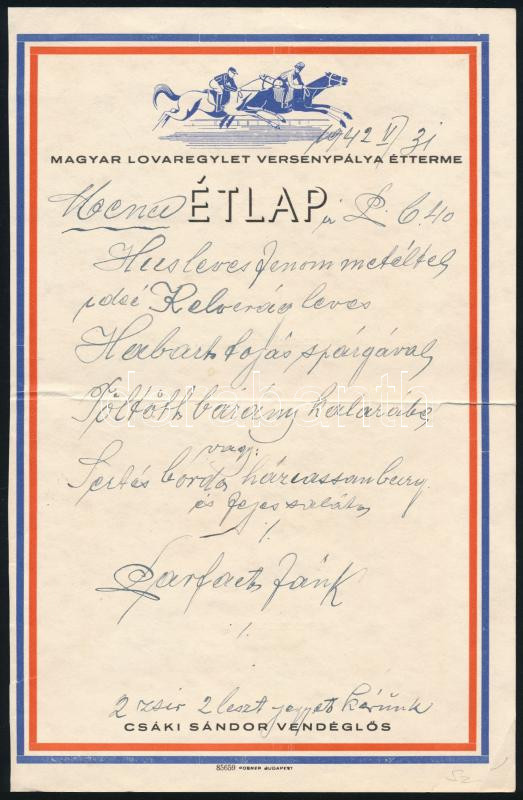 1942 V 31
MAGYAR LOVAREGYLET VERSENYPÁLYA ÉTTERME
Menu ÉTLAP ár P. 6.40
Husleves finom metélttel
Kelvirág leves
Habart tojás spárgával
Töltött bárány kalarábé
vagy:
Sertés borda
és fejes saláta
./.
Parfait Fánk
./.
2 zsir 2 liszt jegyet kérünk
CSÁKI SÁNDOR VENDÉGLŐS
85659 POSNER BUDAPEST
Sz